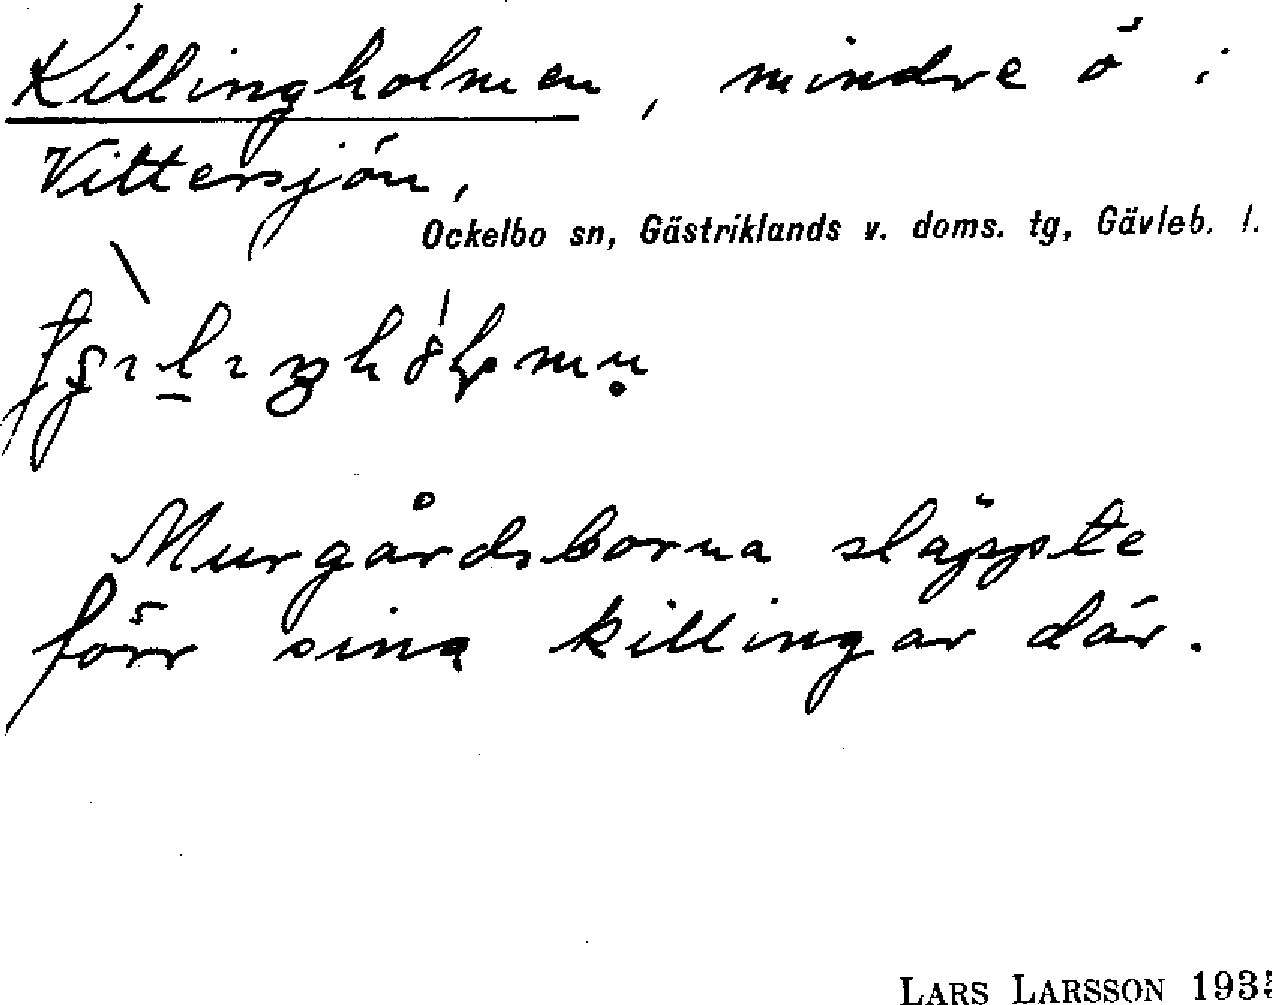 Killingholmen, mindre ö i
Vittersjön,
Ockelbo sn, Gästriklands v. doms. tg, Gävleb. l.
Murgårdsborna släppte
förr sina killingar där.
LARS LARSSON